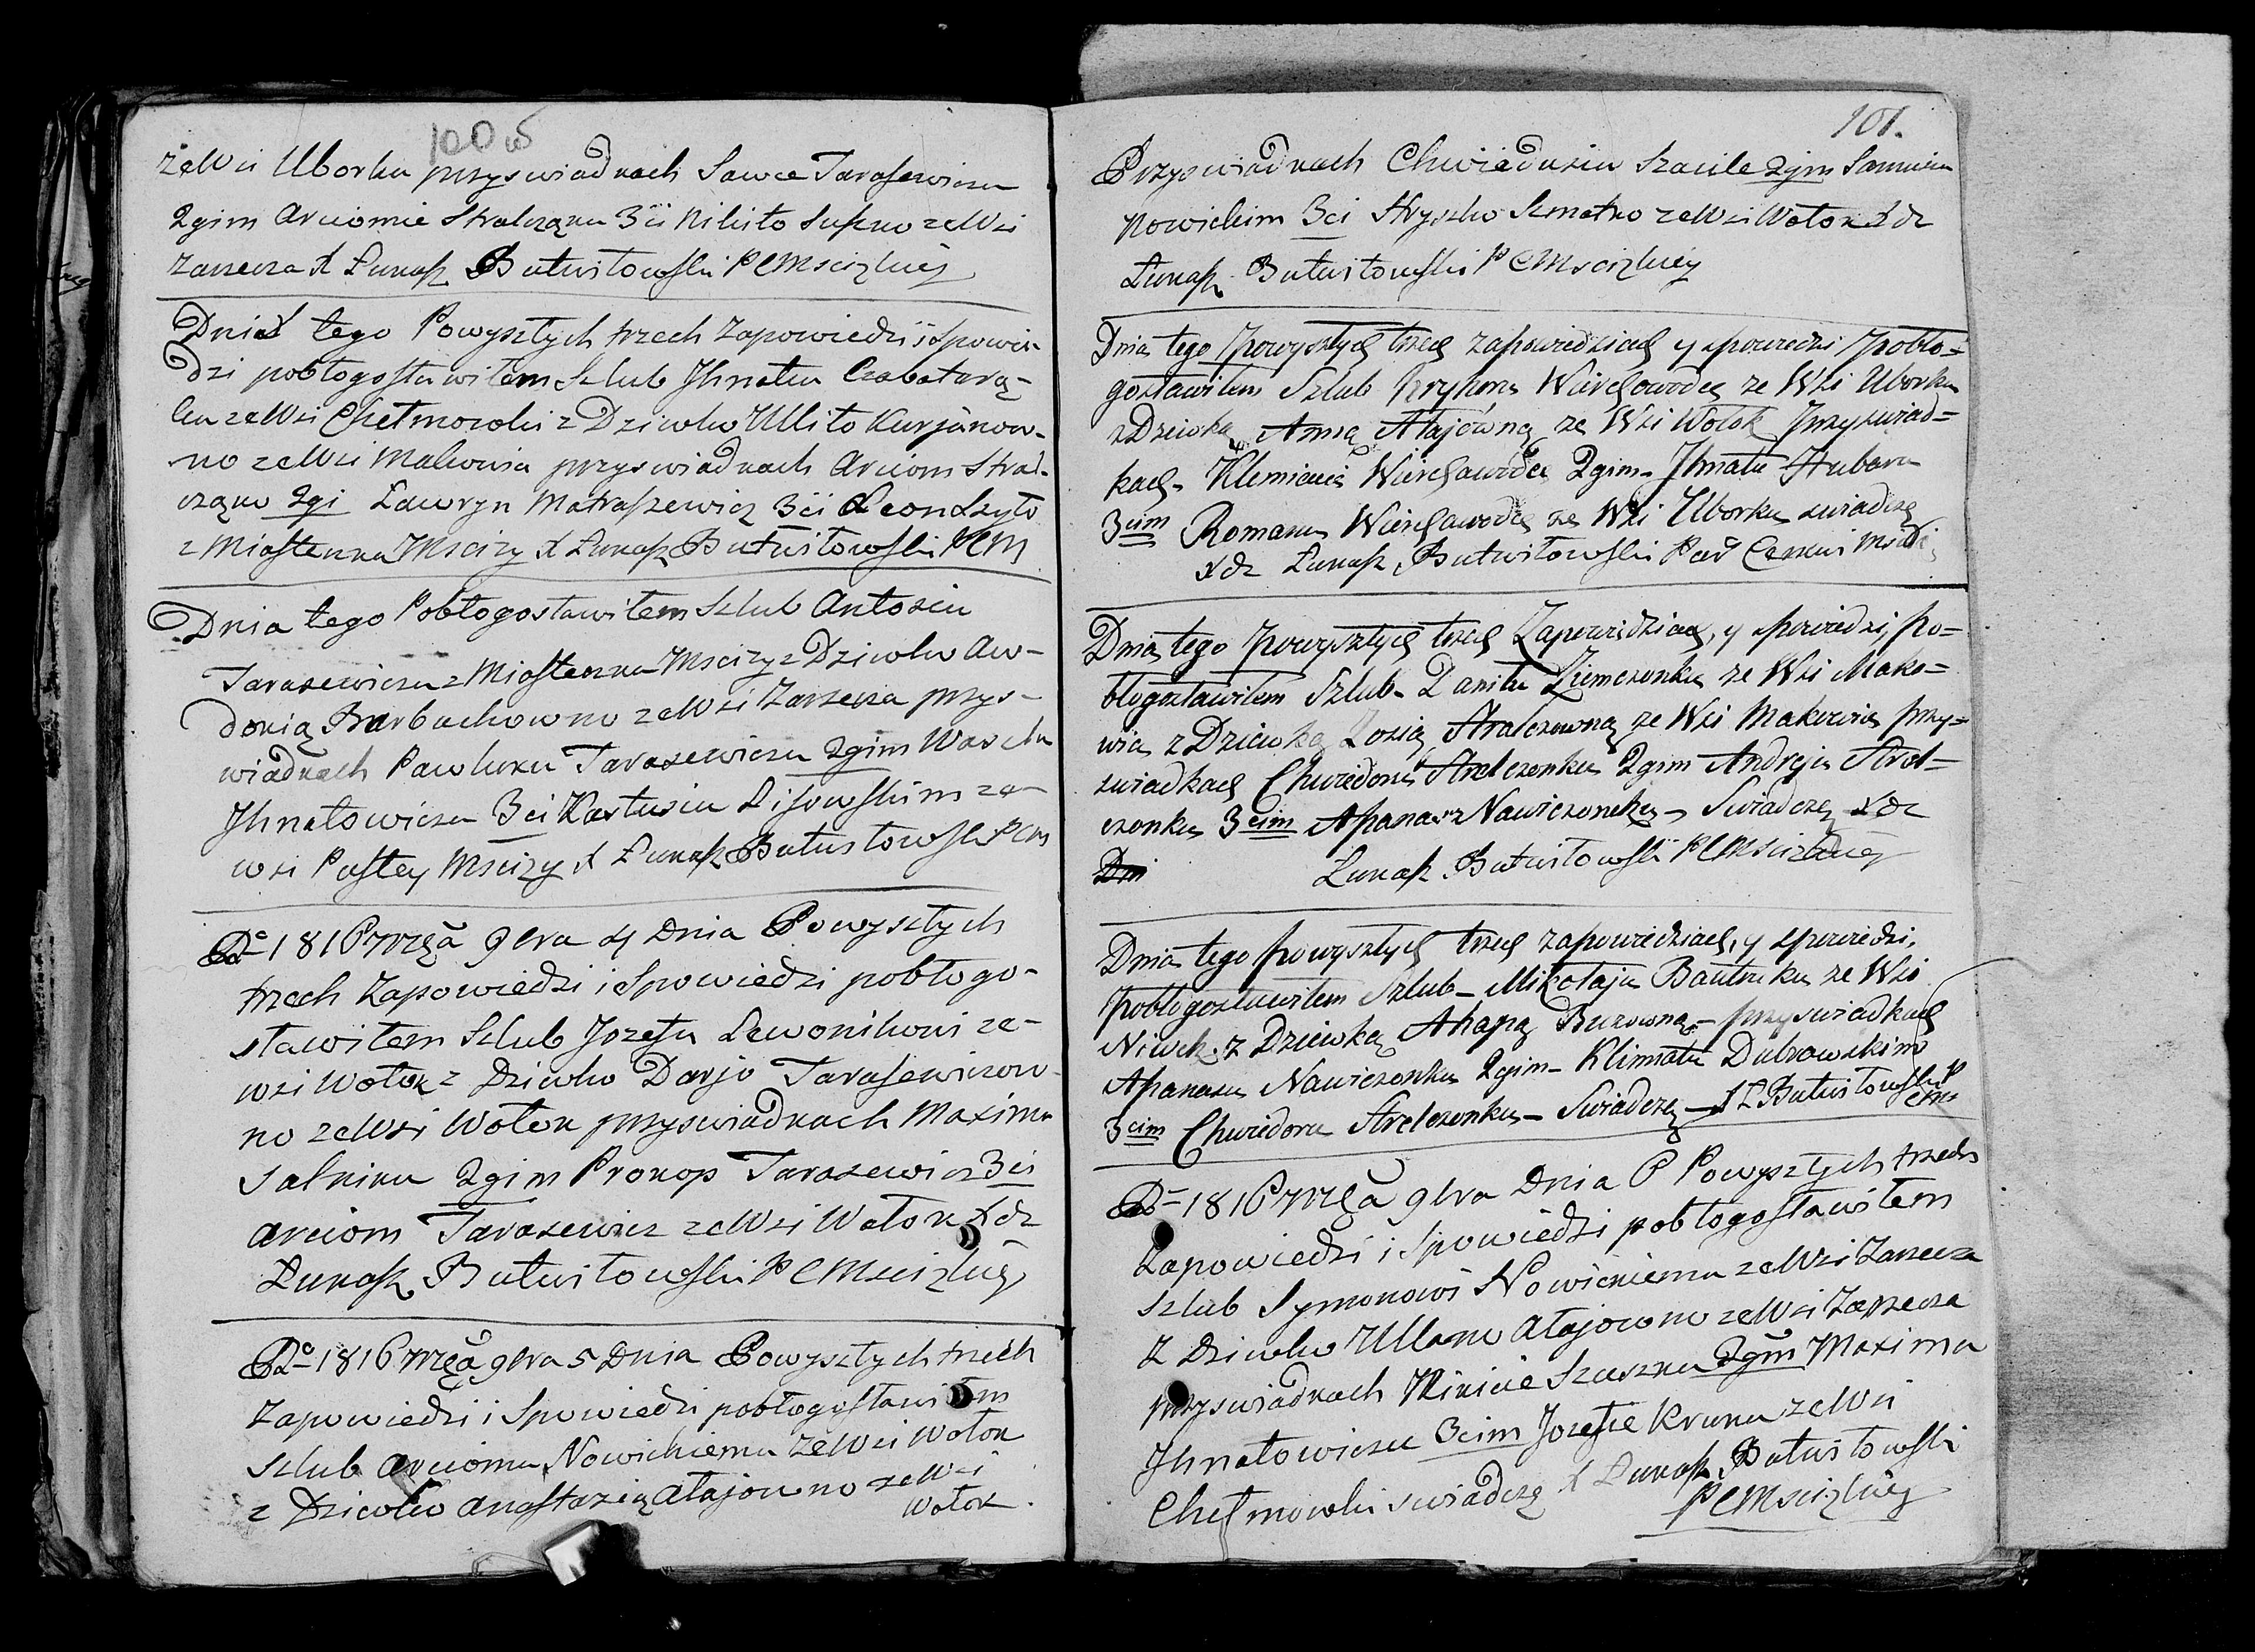 100 об
zeWsi Uborku przyswiadkach Sawce Tarasewiczu
2gim Arciomie Stralcząnu 3ci Nikito Supno zeWsi
Zarzecza X Łukasz Butwiłowski PCMscizkiey
Dnia tego Powyszłych trzech Zapowiedzi i Spowie-
dzi pobłogosławiłem Szlub Jhnatu Czabatarą-
ku zeWsi Chełmowki z Dziwko Ullito Kurjanow-
no zeWsi Makowia przyswiadkach Arciom Stral-
cząno 2gi Ławryn Matraszewicz 3ci Leon Szyło
z Miasteczka Mscizy X Łukasz Butwiłowski PCM
Dnia tego Pobłogosławiłem Szlub Antosiu
Tarasewiczu z Miasteczka Mscizy z Dziwko Aw-
dokią Barbachowno zeWsi Zarzecza przys-
wiadkach Pawluku Tarasewiczu 2gim Wasilu
Jhnatowiczu 3ci Kastusiu Lisowskim ze
wsi Pustey Mscizy X Łukasz Butwiłowski PCM
Rº 1816 Mcą 9bra 4 Dnia Powyszłych
trzech Zapowiedzi i Spowiedzi pobłogo-
sławiłem Szlub Jozefu Lewonikowi ze-
wsi Wołok z Dziwko Darjo Tarasewiczow-
no zeWsi Wołok przyswiadkach Maximu
Salniku 2gim Prokop Tarasewicz 3ci
Arciom Tarasewicz zeWsi Wołok Xdz
Łukasz Butwiłowski PCMscizkiey
Rº 1816 Mcą 9bra 5 Dnia Powyszłych trzech
Zapowiedzi i Spowiedzi pobłogosławiłem
Szlub Arciomu Nowickiemu zeWsi Wołok
z Dziwko Anastazią Ałajowno zeWsi
Wołok
101.
Przyswiadkach Chwiedusiu Szacile 2gim Samusiu
Nowickim 3ci Hryszko Szmatko zeWsi Wołok Xdz
Łukasz Butwiłowski PCMscizkiey
Dnia tego powyszłych trzech zapowiedziach y spowiedzi pobło=
gosławiłem Szlub Hryhoru Wierchowodcę ze Wsi Uborku
z Dziewką Anną Ałajówną ze Wsi Wołok przyswiad=
kach Klemienie Wierchawodce 2gim Jhnatu Hubaru
3cim Romanu Wierchawodcę ze Wsi Uborku swiadczę
Xdz Łukasz Butwiłowski Par Cerkwi Mscizk
Dnia tego powyszłych trzech Zapowiedziach, y spowiedzi, po=
błogosławiłem Szlub Daniłu Ziemczonku ze Wsi Mako=
wia z Dziewką Zosią Stralczowną ze Wsi Makowia przy=
swiadkach Chwiedoru Strelczonku 2gim Andreju Strel=
czonku 3cim Apanasu Nawiczonekę Swiadczę Xdz
Dni
Łukasz Butwiłowski PCMscizkiey
Dnia tego powyszłych trzech zapowiedziach, y spowiedzi,
pobłogosławiłem Szlub Mikołaju Bautruku ze Wsi
Niwek z Dziewką Ahapą Buzowną przyswiadkach
Apanasu Nawiczonku 2gim Klimatu Dubrowskim
3cim Chwiedoru Strelczonku Swiadczę X Ł Butwiłowski P
CM
Rº 1816 Mcą 9bra Dnia 6 Powyszłych trzech
Zapowiedzi i Spowiedzi pobłogosławiłem
Szlub Symonowi Nowickiemu zeWsi Zarzecza
Z Dziwko Ullano Ałajowno zeWsi Zarzecza
przyswiadkach Mikicie Szuszku 2gim Maximu
Jhnatowiczu 3cim Jozefie Kruku zeWsi
Chełmowki swiadczę X Łukasz Butwiłowski
PCMscizkiey